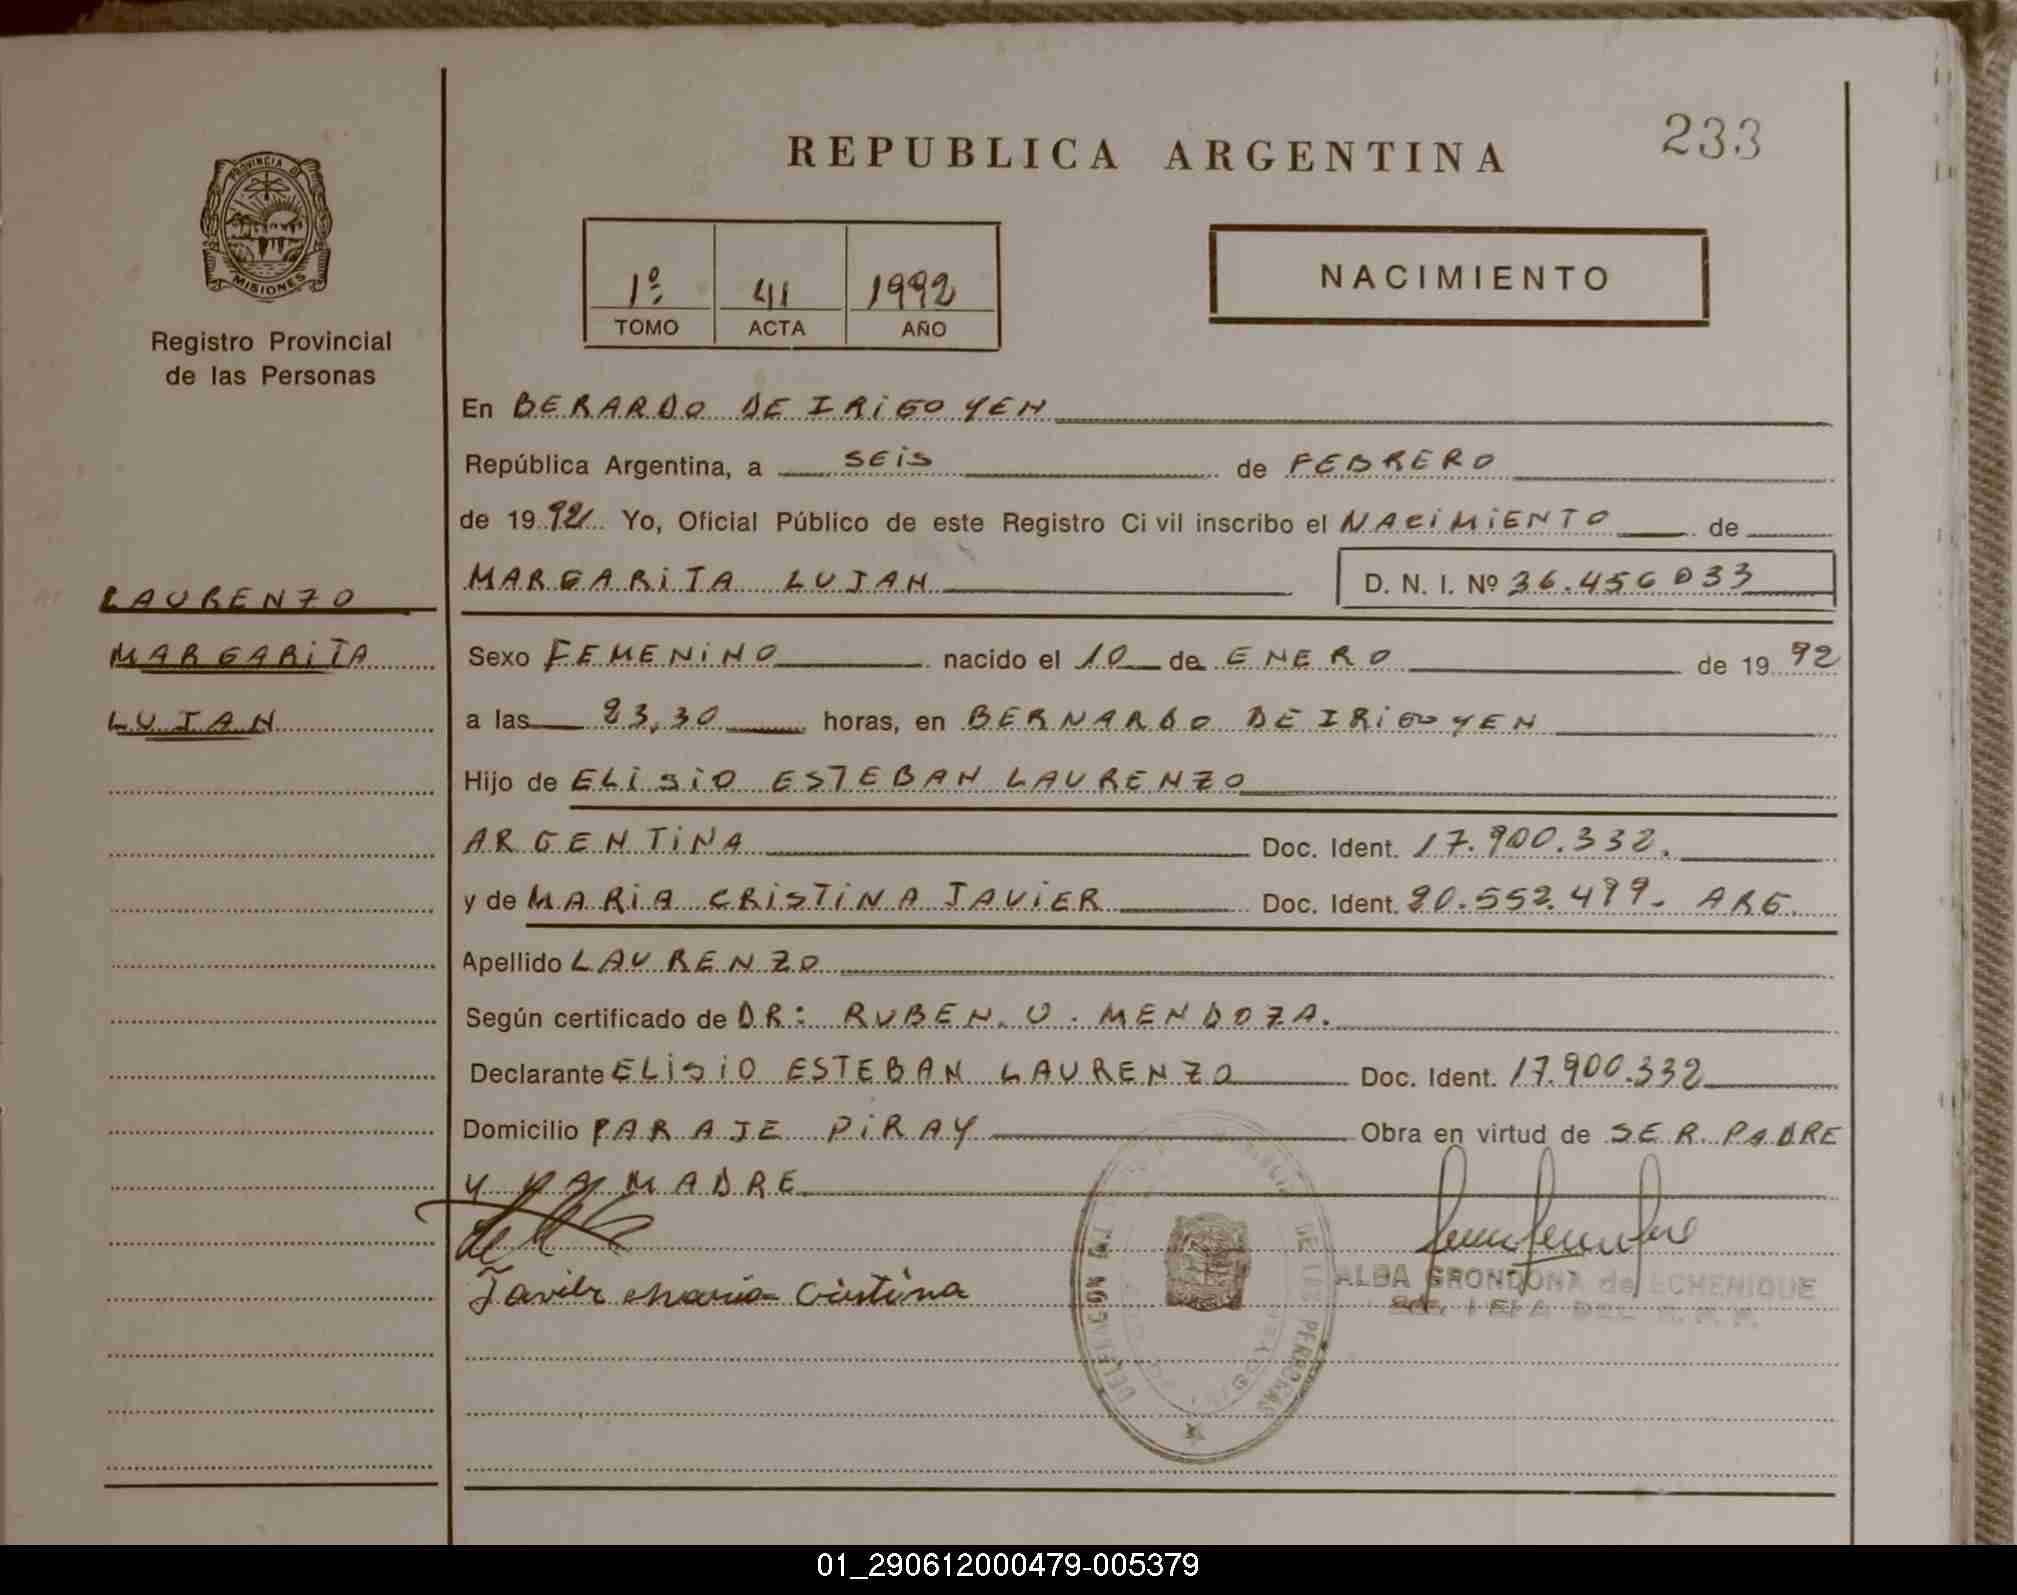 REPUBLICA ARGENTINA
233
PROVINCIA DE
MISIONES
Registro Provincial
de las Personas
1º 41 1992
TOMO ACTA AÑO
NACIMIENTO
En BERARDO DE IRIGOYEN
República Argentina, a SEIS de FEBRERO
de 1992 Yo, Oficial Público de este Registro Civil inscribo el NACIMIENTO de
MARGARITA LUJAN D. N. I. Nº 36.456033
LAURENZO
MARGARITA
LUJAN
Sexo FEMENINO nacido el 10 de ENERO de 1992
a las 23,30 horas, en BERNARDO DE IRIGOYEN
Hijo de ELISIO ESTEBAN LAURENZO
ARGENTINA Doc. Ident. 17.900.332.
y de MARIA CRISTINA JAVIER Doc. Ident. 20.552.499- ARG.
Apellido LAURENZO
Según certificado de DR: RUBEN. O. MENDOZA.
Declarante ELISIO ESTEBAN LAURENZO Doc. Ident. 17.900.332
Domicilio PARAJE PIRAY Obra en virtud de SER PADRE
Y LA MADRE
Javier Maria Cristina
ALBA GRONDONA de ECHENIQUE
DE LAS PERSONAS
01_290612000479-005379